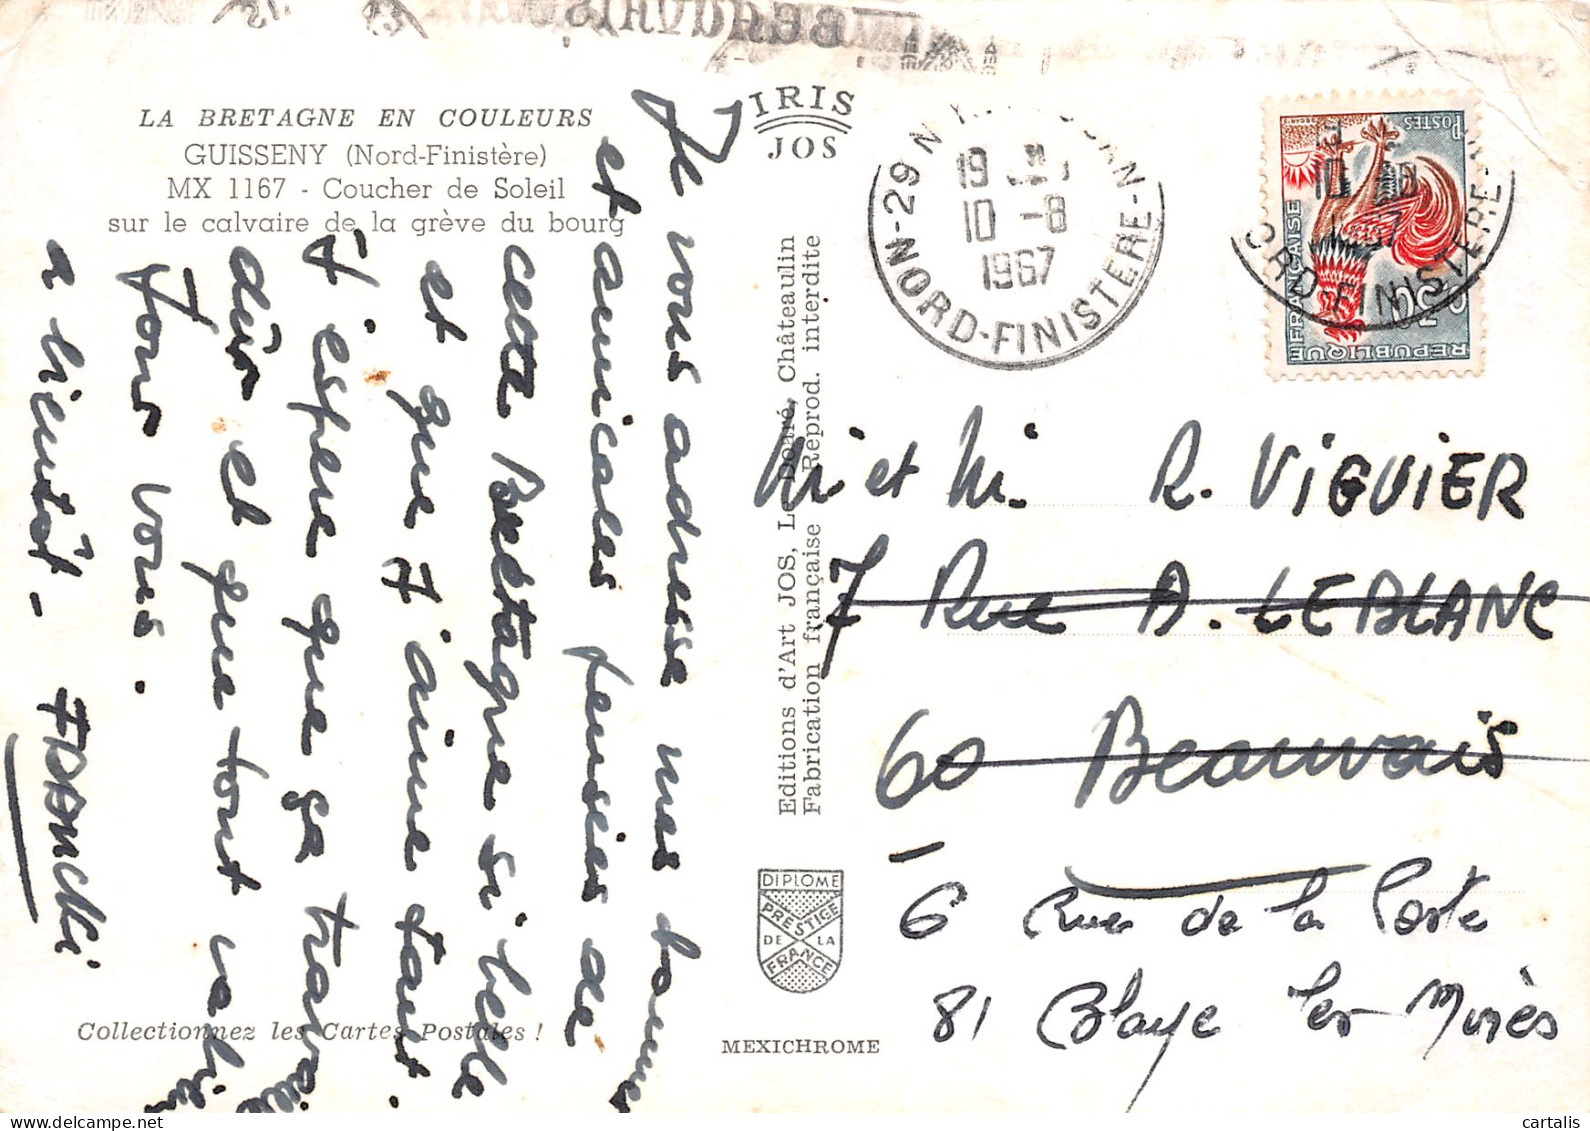 LA BRETAGNE EN COULEURS
GUISSENY (Nord-Finistère)
MX 1167 - Coucher de Soleil
sur le calvaire de la grève du bourg
IRIS
JOS
Je vous adresse mes bonnes
et amicales pensées de
cette Bretagne si belle
et que j'aime tant.
J'espère que ça travaille
dûr et que tout va bien
pour vous.
a bientôt -
Editions d'Art JOS, Le Doaré, Châteaulin
Fabrication française Reprod. interdite
29 N
NORD-FINISTERE-N
19
10 -8
1967
POSTES
0,30
REPUBLIQUE FRANÇAISE
ORD-FINISTERE
M. et M. R. VIGUIER
7 Rue A. LEBLANC
60 Beauvais
6 Rue de la Poste
81 Blaye les Mines
DIPLOME
PRESTIGE
DE LA
FRANCE
Collectionnez les Cartes Postales !
MEXICHROME
cartalis